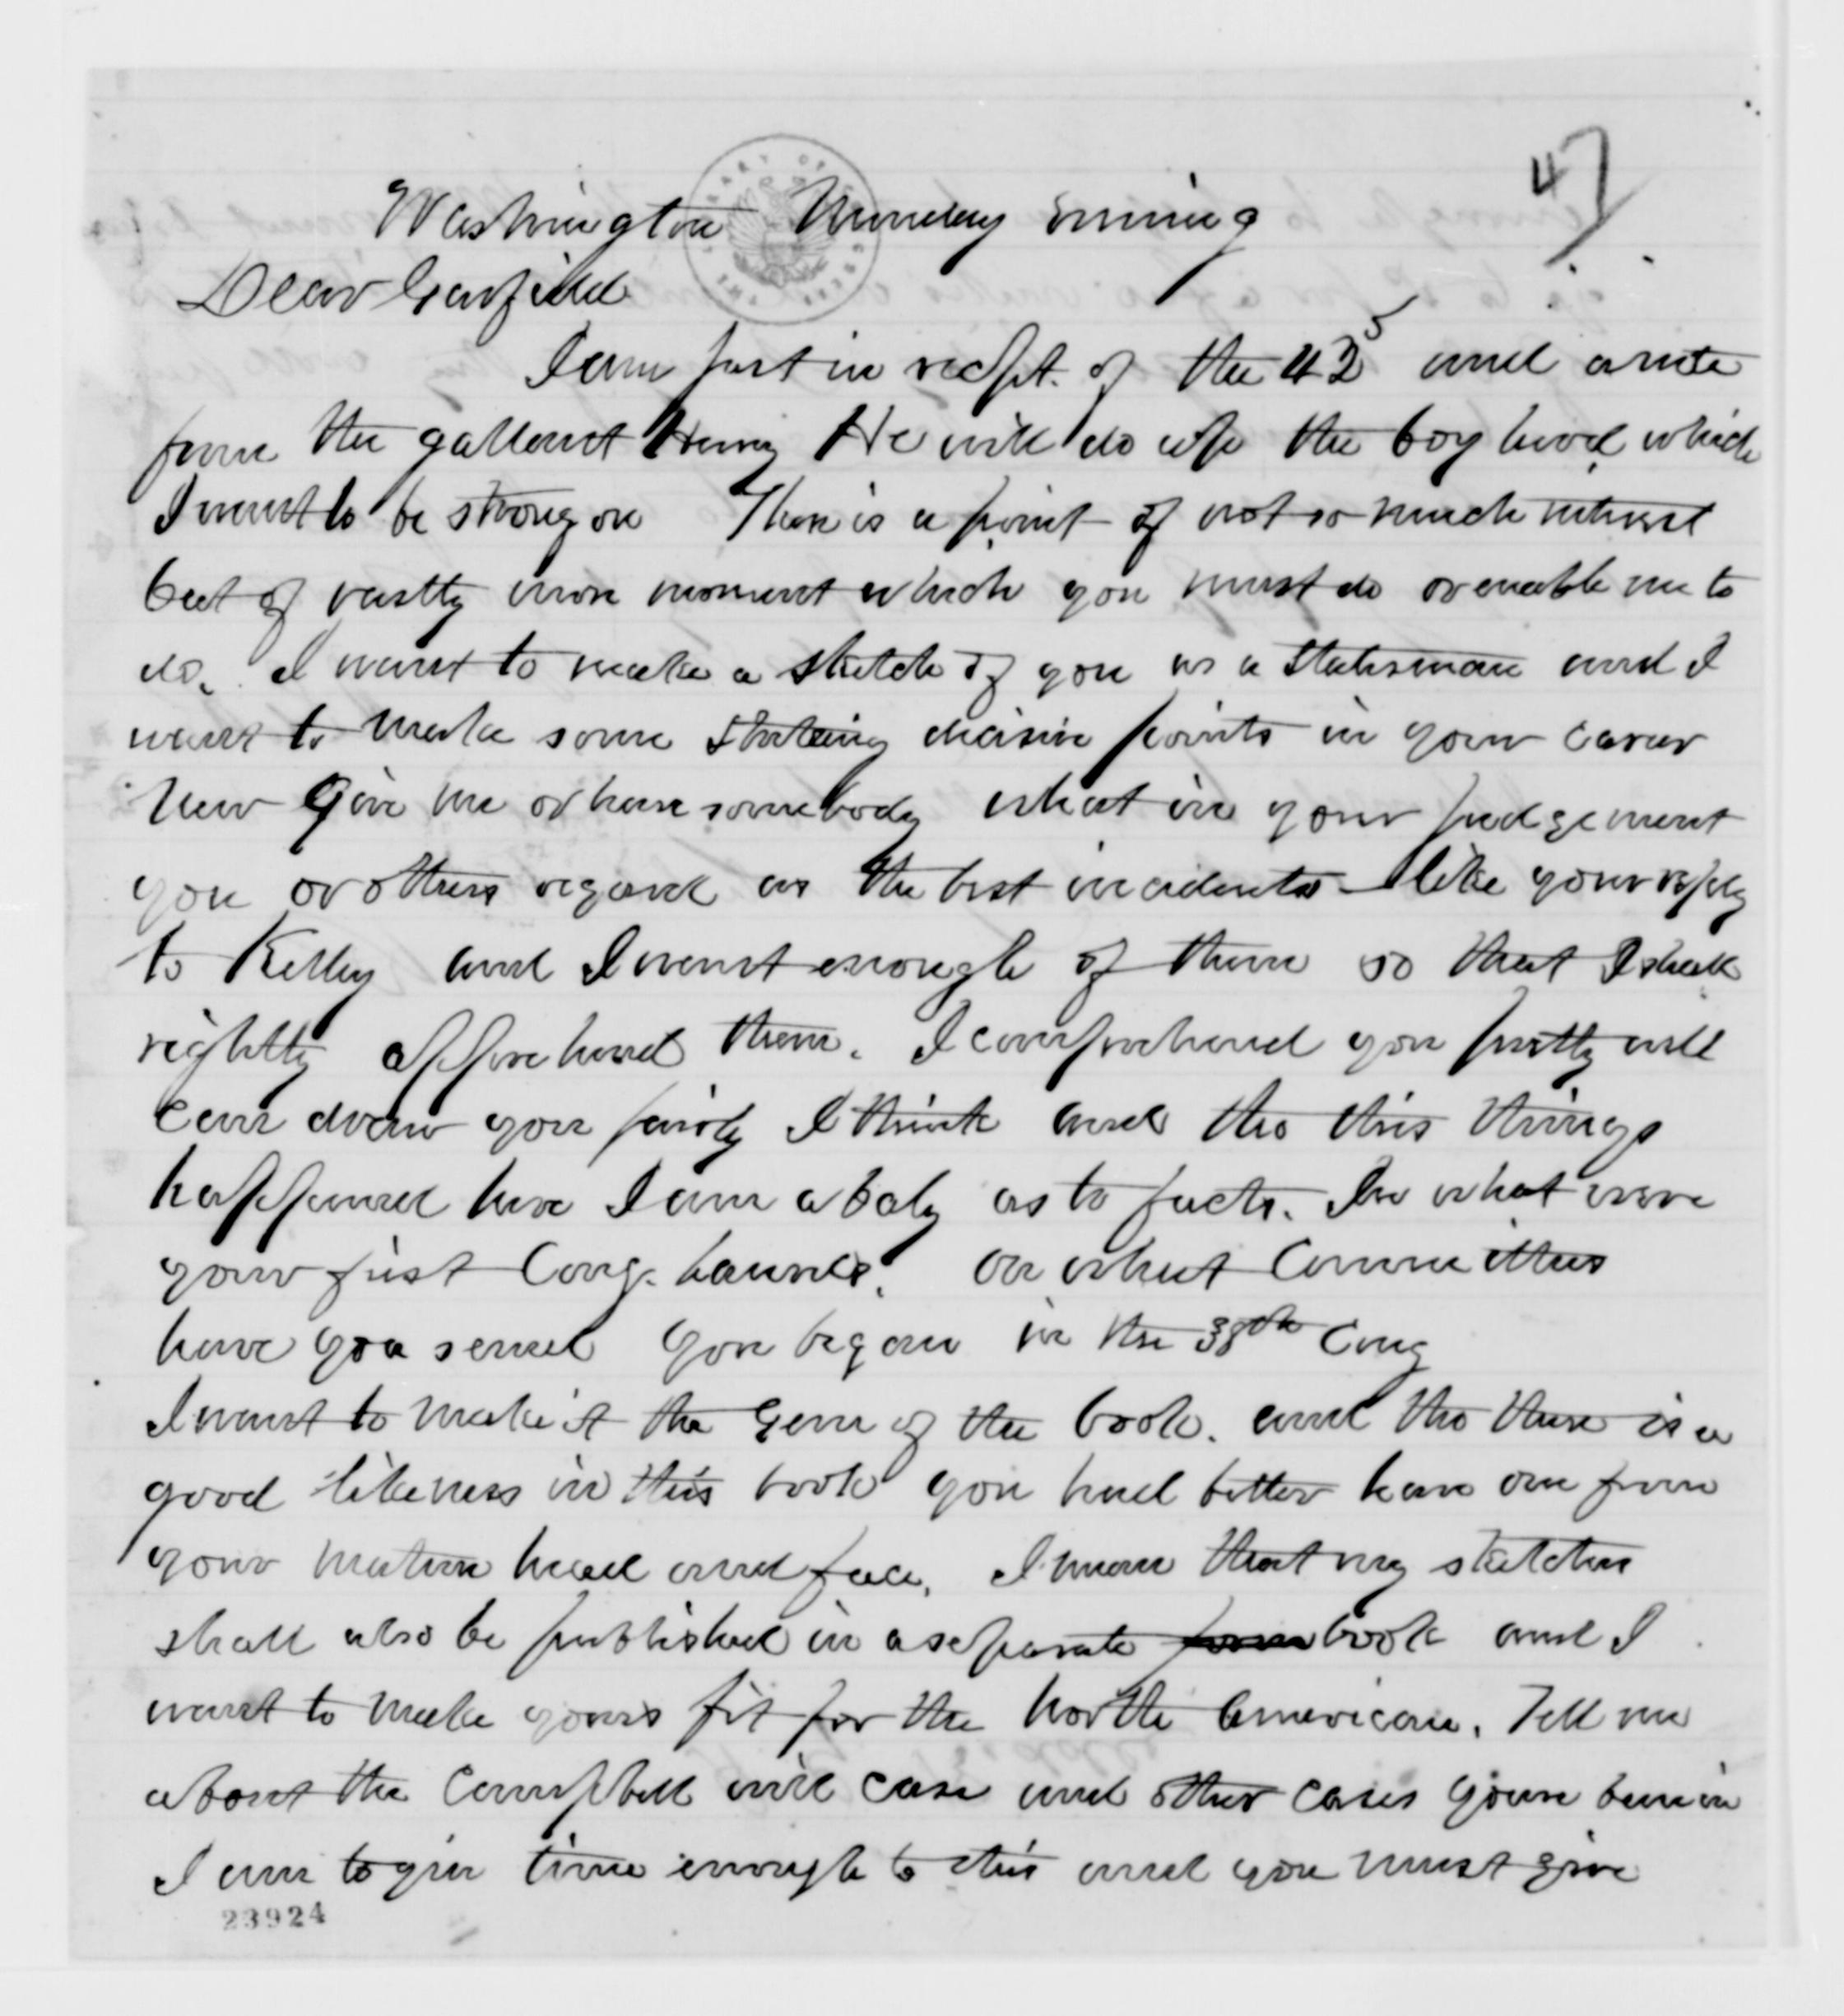 47
Washington Monday evening
Dear Garfield
I am just in recpt. of the 425 and a note
from the gallant Henry He will do up the boy hood which
I want to be strong on There is a point of not so much interest
but of vastly more moment which you must do or enable me to
do. I want to make a sketch of you as a statesman and I
want to make some striking decisive points in your career
Now Give me or have somebody what in your judgement
you or others regard as the best incidents – like your reply
to Kelley and I want enough of them so that I shall
rightly apprehend them. I comprehend you pretty well
can draw you fairly I think and tho this things
happened here I am a baby as to facts. In what were
your first Cong. laurels. on what Committees
have you served You began in the 38th Cong
I want to make it the Gem of the book. and tho there is a
good likeness in this book you had better have one from
your mature head and face. I mean that my sketches
shall also be published in a separate form book and I
want to make yours fit for the North American. Tell me
about the Campbell will case and other cases youve been in
I am to give time enough to this and you must give
23924